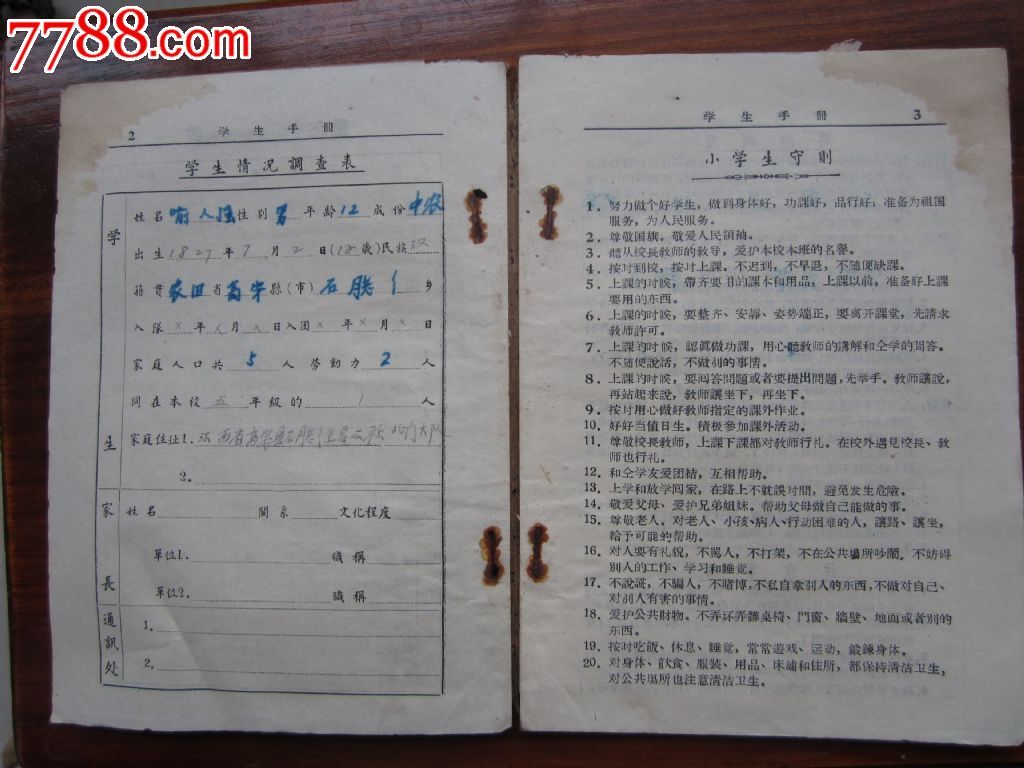 7788.com
2 学生手册
学生情况調查表
姓名 俞人强 性別 男 年龄 12 成份 中农
出生 1827 年 7 月 2 日 (12 歲) 民族 汉
籍貫 省 高安 縣(市) 石腦 乡
入隊 × 年 × 月 × 日 入团 × 年 × 月 × 日
家庭人口共 5 人 劳動力 2 人
同在本校 五 年級的 1 人
家庭住址1. 江西省高安县石腦 卫星公社 大队
2.
学生
姓名 関系 文化程度
單位1. 職稱
單位2. 職稱
家長
通訊处
1.
2.
学生手册 3
小学生守則
1．努力做个好学生，做到身体好，功課好，品行好，准备为祖国
服务，为人民服务。
2．尊敬国旗。敬爱人民領袖。
3．聽从校長教师的教导，爱护本校本班的名譽。
4．按时到校，按时上課。不迟到，不早退，不随便缺課。
5．上課的时候，帶齐要用的課本和用品，上課以前，准备好上課
要用的东西。
6．上課的时候，要整齐、安靜、姿势端正，要离开課堂，先請求
教师許可。
7．上課的时候，認眞做功課，用心聽教师的講解和仝学的問答。
不随便說話，不做别的事情。
8．上課的时候，要囘答問題或者要提出問題，先举手。教师讓說，
再站起来說，教师讓坐下，再坐下。
9．按时用心做好教师指定的課外作业。
10．好好当値日生。积極参加課外活动。
11．尊敬校長教师，上課下課都对教师行礼。在校外遇見校長、教
师也行礼。
12．和仝学友爱团結，互相帮助。
13．上学和放学囘家，在路上不躭誤时間，避免发生危險。
14．敬爱父母、爱护兄弟姐妹。帮助父母做自己能做的事。
15．尊敬老人。对老人、小孩、病人、行动困难的人，讓路、讓坐，
給予可能的帮助。
16．对人要有礼貌，不罵人，不打架，不在公共場所吵鬧。不妨碍
别人的工作、学习和睡覚。
17．不說謊，不騙人，不賭博，不私自拿别人的东西，不做对自己、
对别人有害的事情。
18．爱护公共財物。不弄坏弄髒桌椅、門窗、牆壁、地面或者别的
东西。
19．按时吃飯、休息、睡覚，常常遊戏、运动，鍛鍊身体。
20．对身体、飲食、服裝、用品、床鋪和住所，都保持清洁卫生，
对公共場所也注意清洁卫生。